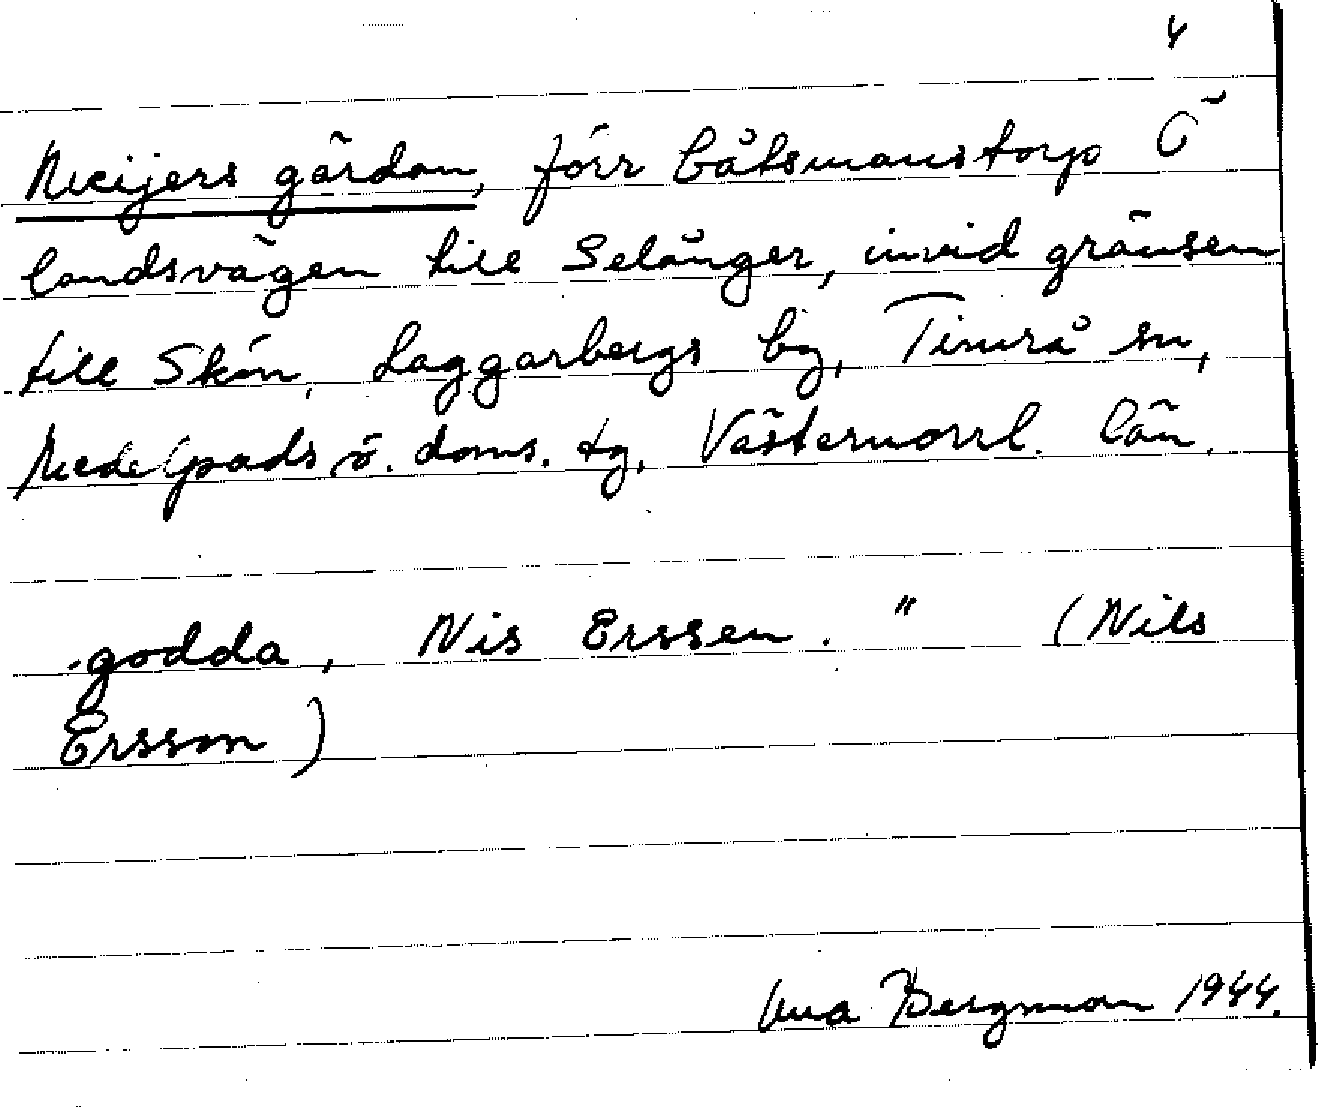 4
Meijers gården, förr båtsmanstorp Ö
landsvägen till Selånger, invid gränsen
till Skön, Laggarbergs by, Timrå sn,
Medelpads ö. doms. tg, Västernorrl. län.
-godda, Nis Erssen. " (Nils
Ersson)
Bergman 1944.